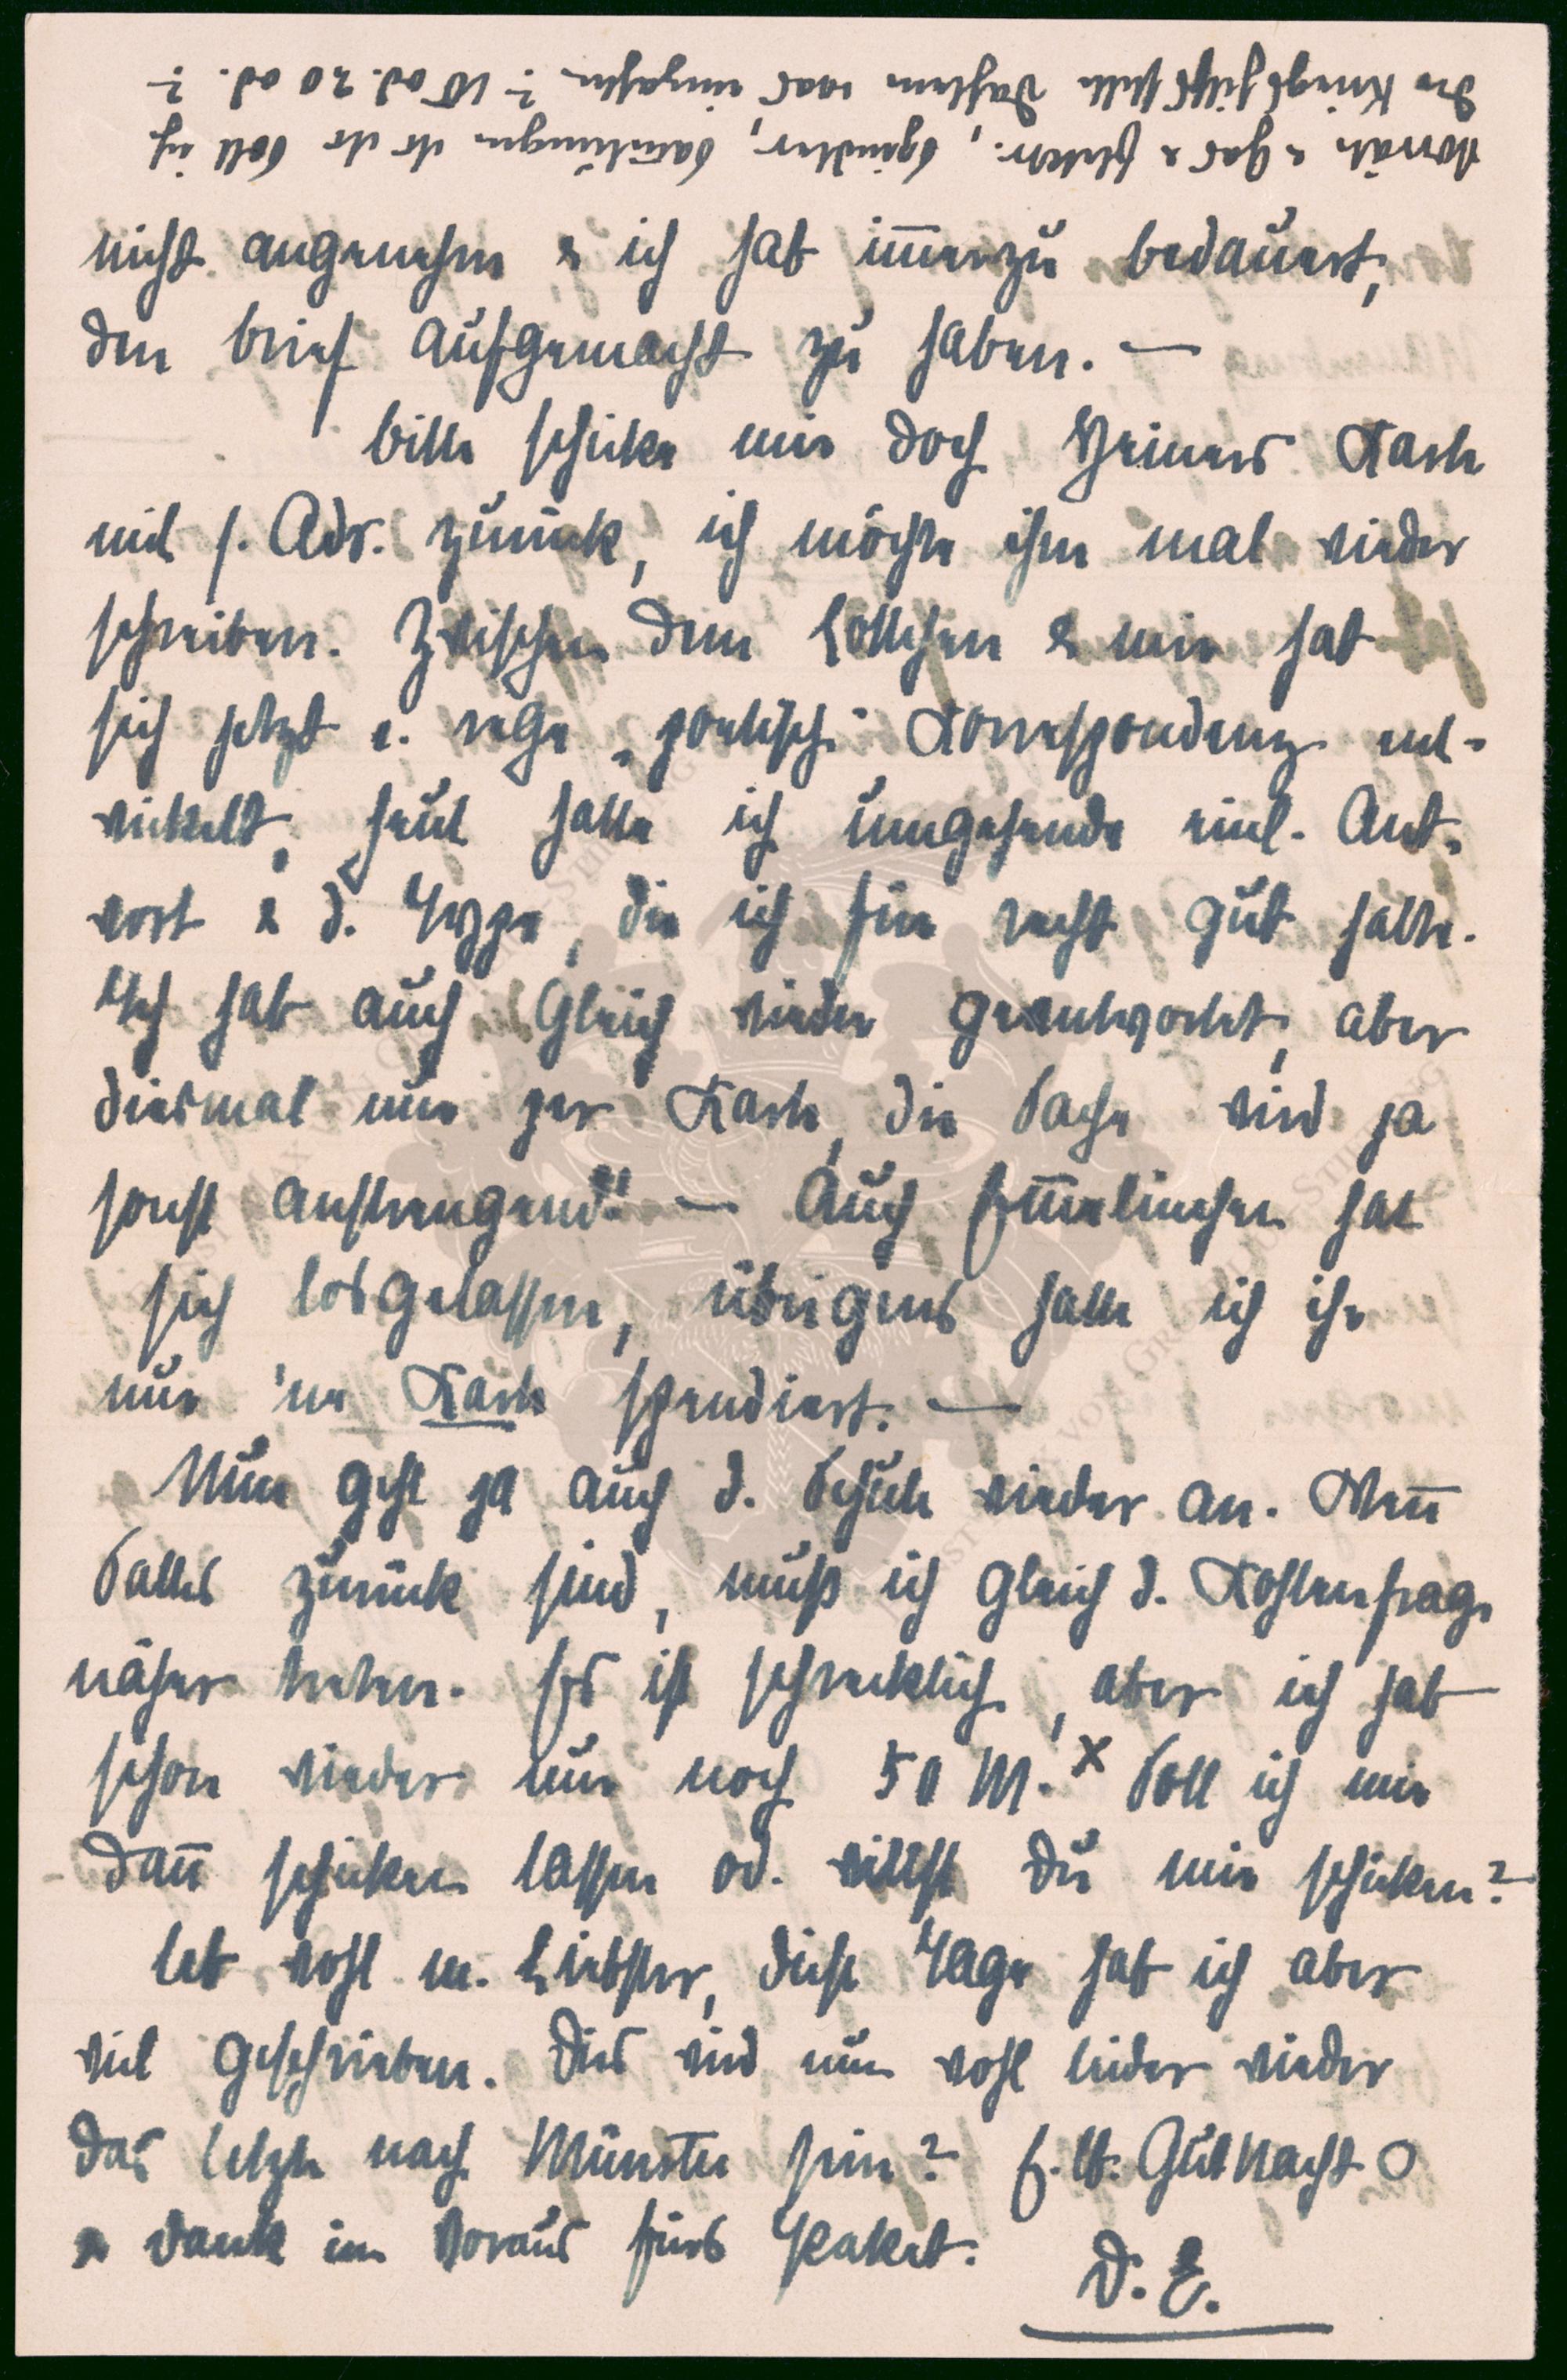 nicht angenehm & ich hab im̄erzu bedauert,
den Brief aufgemacht zu haben. —
Bitte schicke mir doch Heiners Karte
mit s. Adr. zurück, ich möchte ihm mal wieder
schreiben. Zwischen dem Lottchen & mir hat
sich jetzt e. rege „poetische" Korrespondenz ent-
wickelt, heut hatte ich umgehende Ant-
wort & d. Type, die ich für recht gut halte.
Ich hab auch gleich wieder geantwortet, aber
diesmal nur per Karte, die Sache wird ja
sonst anstrengend! — Auch hat
sich losgelassen, übrigens hatte ich ihr
nur 'ne Karte spendiert. —
Nun geht ja auch d. Schule wieder an. Wen̄
zurück sind, muß ich gleich d. Kohlenfrage
näher treten. Es ist schrecklich, aber ich hab
schon wieder nur noch 50 M. x Soll ich mir
dan̄ schicken lassen od. willst Du mir schicken?
Leb wohl m. Liebster, diese Tage hab ich aber
viel geschrieben. Dies wird nun wohl leider wieder
das letzte nach Münster sein? Gut Nacht O
& Dank im Voraus fürs Paket.
D. E.
vorräte & Gas & Elektr., soll ich
der Kriegshilfsstelle was eingehen? 10 od. 20 od. ?